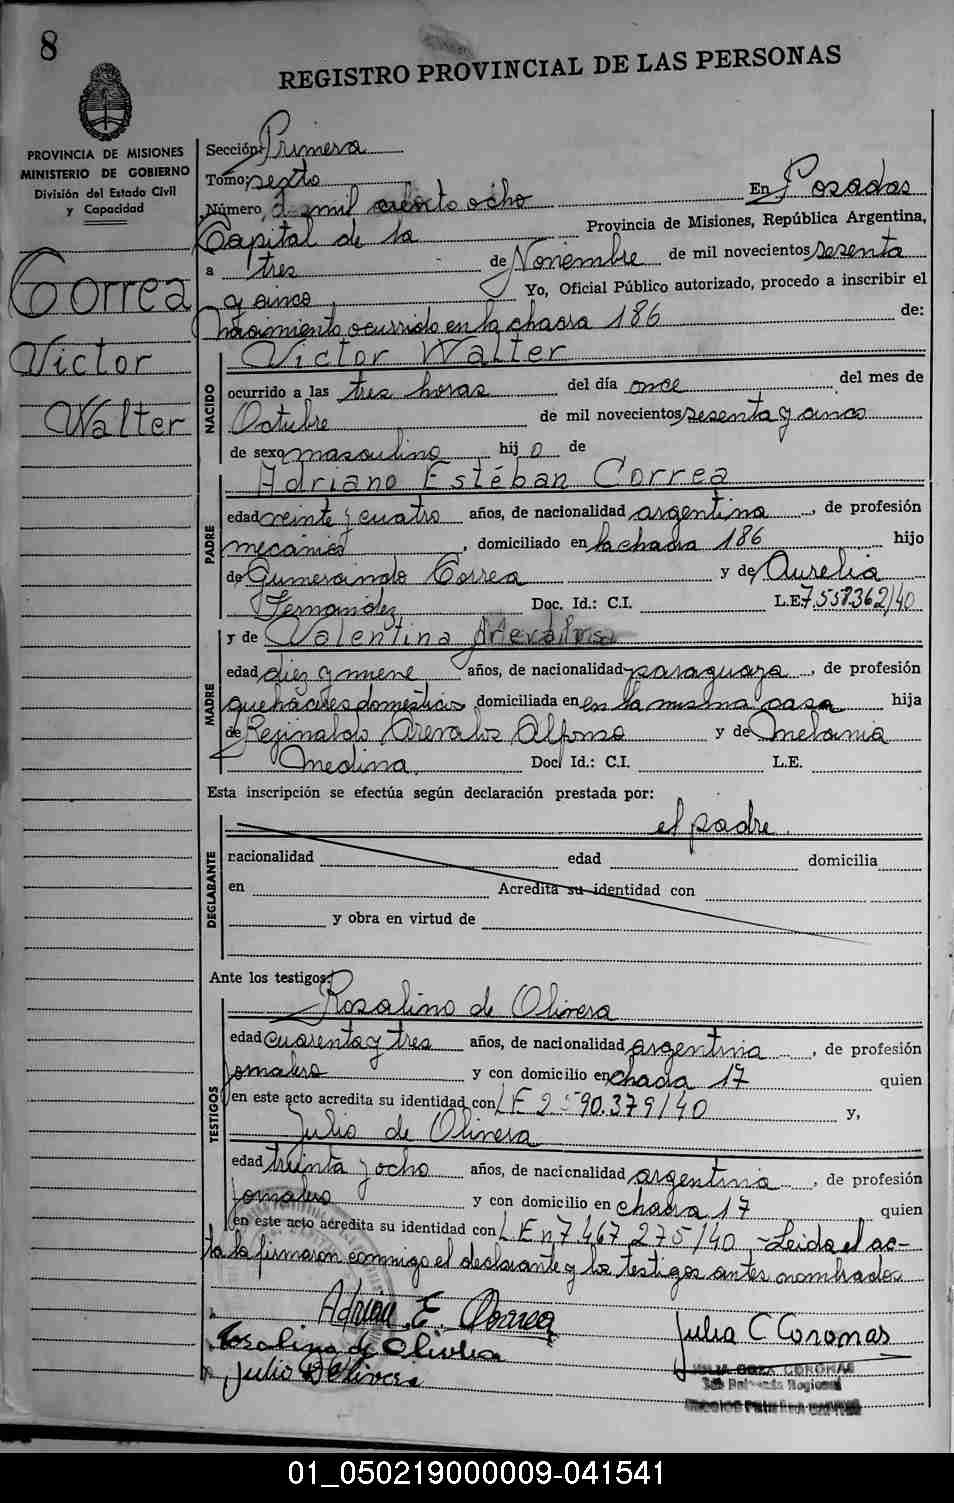 8
REGISTRO PROVINCIAL DE LAS PERSONAS
PROVINCIA DE MISIONES
MINISTERIO DE GOBIERNO
División del Estado Civil
y Capacidad
Correa
Victor
Walter
Sección: Primera
Tomo; sexto
Número, mil ocho En Posadas
Capital de la Provincia de Misiones, República Argentina,
a tres de Noviembre de mil novecientos sesenta
y cinco, Yo, Oficial Público autorizado, procedo a inscribir el
Nacimiento ocurrido en la chacra 186 de:
NACIDO
Victor Walter
ocurrido a las tres horas del día once del mes de
Octubre de mil novecientos sesenta y cinco
de sexo masculino hij o de
PADRE
Adriano Estéban Correa
edad veinte y cuatro años, de nacionalidad argentina, de profesión
mecánico, domiciliado en la chacra 186 hijo
de Gumersindo Correa y de Aurelia
Fernandez Doc. Id.: C.I. L.E. 7.558.362/40
MADRE
y de Valentina
edad diez y nueve años, de nacionalidad paraguaya, de profesión
quehaceres domésticos domiciliada en en la misma casa hija
de Reginaldo Arevalos Alfonso y de Melania
Medina. Doc. Id.: C.I. L.E.
Esta inscripción se efectúa según declaración prestada por:
el padre.
DECLARANTE
nacionalidad edad domicilia
en Acredita su identidad con
y obra en virtud de
Ante los testigos:
TESTIGOS
Rosalino de Olivera
edad cuarenta y tres años, de nacionalidad argentina, de profesión
jornalero y con domicilio en chacra 17 quien
en este acto acredita su identidad con LE 2.590.379/40 y,
Julio de Olivera
edad treinta y ocho años, de nacionalidad argentina, de profesión
jornalero y con domicilio en chacra 17 quien
en este acto acredita su identidad con LE n 7467275/40 - Leida el ac-
ta la firmaron conmigo el declarante y los testigos antes nombrados
Adrian E. Correa
Rosalino de Olivera
Julia C Coronas
Julio D Olivera
CORONAS
01_050219000009-041541